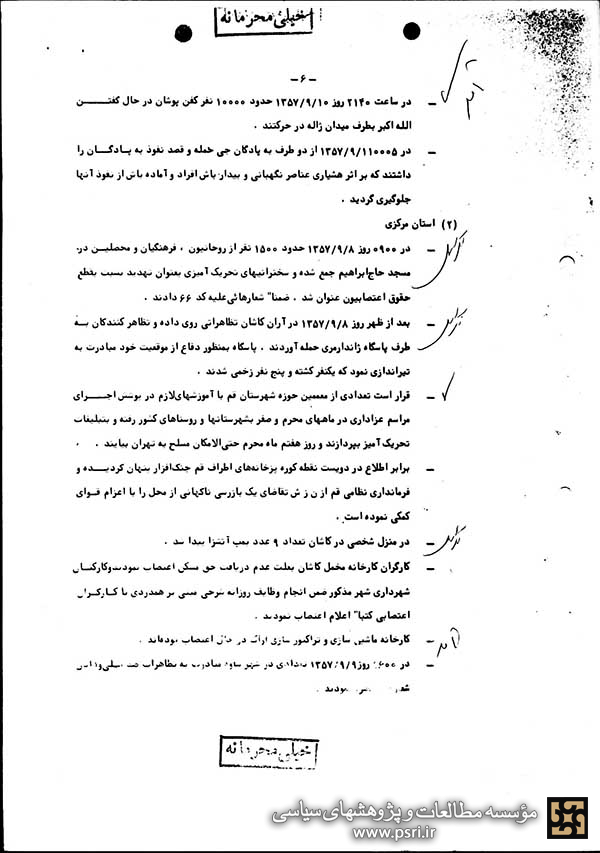 خیلی محرمانه
-۶-
ـ در ساعت ۲۱۴۰ روز ۱۳۵۷/۹/۱۰ حدود ۱۰۰۰۰ نفر کفن پوشان در حال گفتن
الله اکبر بطرف میدان ژاله در حرکتند .
ـ در ۱۳۵۷/۹/۱۱۰۰۰۵ از دو طرف به پادگان جی حمله و قصد نفوذ به پادگان را
داشتند که بر اثر هشیاری عناصر نگهبانی و بیدار باش افراد و آماده باش از نفوذ آنها
جلوگیری گردید .
(۲) استان مرکزی
ـ در ۰۹۰۰ روز ۱۳۵۷/۹/۸ حدود ۱۵۰۰ نفر از روحانیون ، فرهنگیان و محصلین در
مسجد حاج ابراهیم جمع شده و سخنرانیهای تحریک آمیزی بعنوان تهدید نسبت بقطع
حقوق اعتصابیون عنوان شد . ضمنا" شعارهائی علیه کد ۶۶ دادند .
ـ بعد از ظهر روز ۱۳۵۷/۹/۸ در آران کاشان تظاهراتی روی داده و تظاهر کنندگان به
طرف پاسگاه ژاندارمری حمله آوردند . پاسگاه بمنظور دفاع از موقعیت خود مبادرت به
تیراندازی نمود که یکنفر کشته و پنج نفر زخمی شدند .
ـ قرار است تعدادی از معممین حوزه شهرستان قم با آموزشهای لازم در پوشش اجرای
مراسم عزاداری در ماههای محرم و صفر بشهرستانها و روستاهای کشور رفته و بتبلیغات
تحریک آمیز بپردازند و روز هفتم ماه محرم حتی الامکان مسلح به تهران بیایند .
ـ برابر اطلاع در دویست نقطه کوره پزخانه‌های اطراف قم جنگ افزار پنهان گردیده و
فرمانداری نظامی قم از ن ز ش تقاضای یک بازرسی ناگهانی از محل را با اعزام قوای
کمکی نموده است .
ـ در منزل شخصی در کاشان تعداد ۹ عدد بمب آتشزا پیدا شد .
ـ کارگران کارخانه مخمل کاشان بعلت عدم دریافت حق مسکن اعتصاب نمودند و کارکنان
شهرداری شهر مذکور ضمن انجام وظایف روزانه بنرخی مبنی بر همدردی با کارگران
اعتصابی کتبا" اعلام اعتصاب نمودند .
ـ کارخانه ماشین سازی و تراکتور سازی اراک در حال اعتصاب بوده‌اند .
ـ در روز ۱۳۵۷/۹/۹ تعدادی در شهر ساوه مبادرت به تظاهرات
نمودند .
خیلی محرمانه
مؤسسه مطالعات و پژوهشهای سیاسی
www.psri.ir